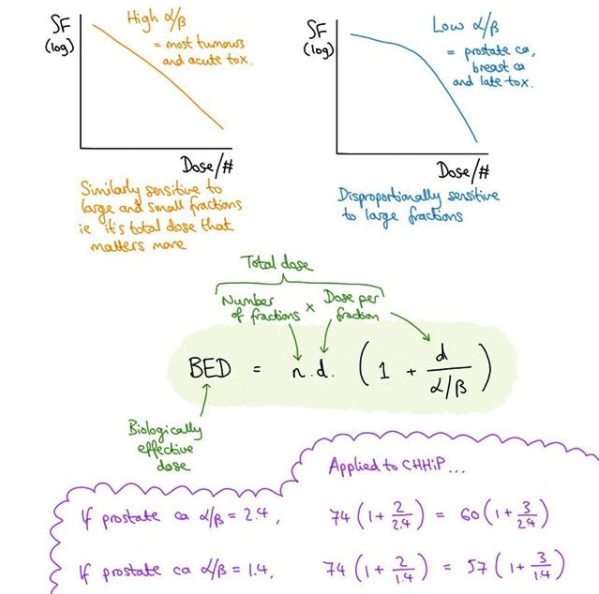 SF
(log)
High α/β
= most tumours
and acute tox.
Dose/#
Similarly sensitive to
large and small fractions
ie it's total dose that
matters more
SF
(log)
Low α/β
= prostate ca,
breast ca
and late tox.
Dose/#
Disproportionally sensitive
to large fractions
Total dose
Number of fractions × Dose per fraction
BED = n.d. (1 + d / α/β)
Biologically
effective
dose
Applied to CHHiP...
If prostate ca α/β = 2.4, 74(1+2/2.4) = 60(1+3/2.4)
If prostate ca α/β = 1.4, 74(1+2/1.4) = 57(1+3/1.4)